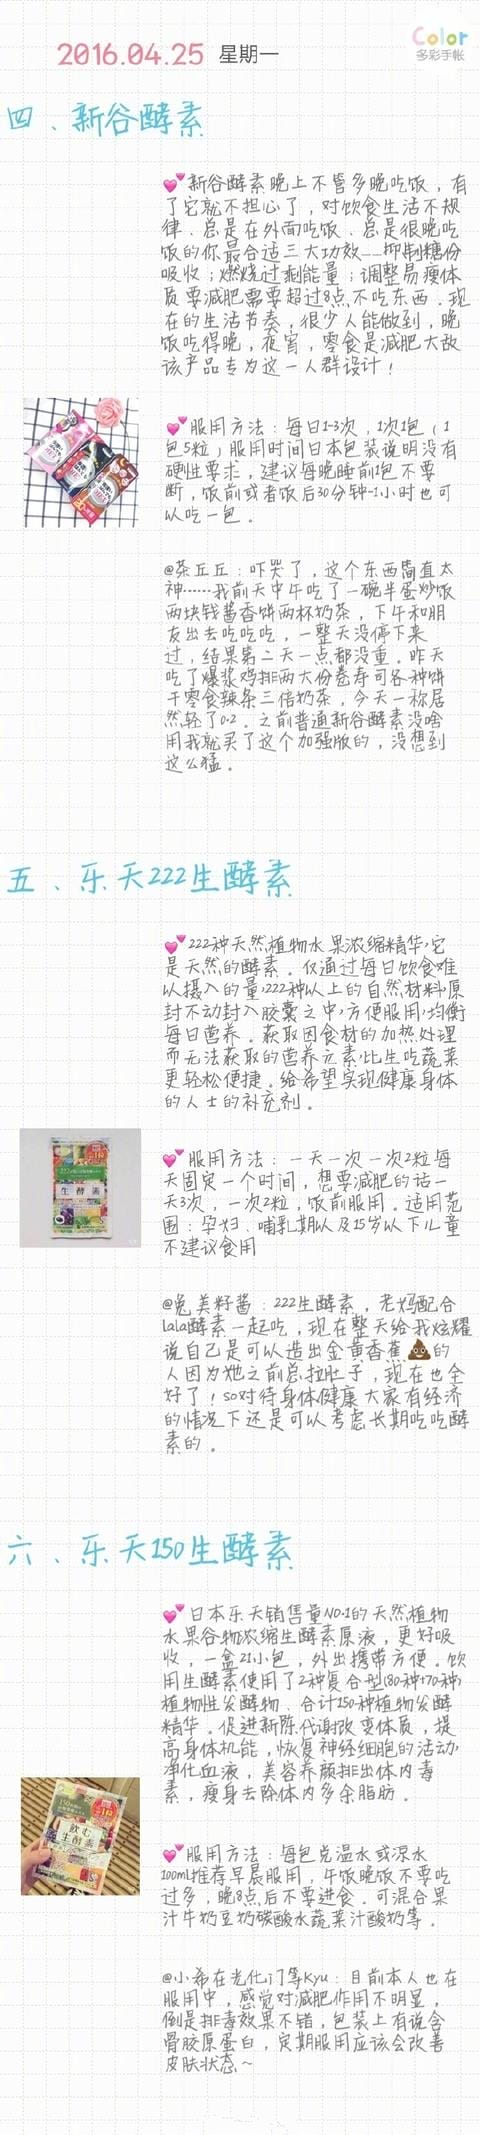 Color
多彩手帐
2016.04.25 星期一
四、新谷酵素
💕新谷酵素晚上不管多晚吃饭，有
了它就不担心了，对饮食生活不规
律、总是在外面吃饭、总是很晚吃
饭的你最合适三大功效——抑制糖份
吸收；燃烧过剩能量；调整易瘦体
质要减肥需要超过8点不吃东西。现
在的生活节奏，很少人能做到，晚
饭吃得晚，夜宵，零食是减肥大敌
该产品专为这一人群设计！
💕服用方法：每日1-3次，1次1包（1
包5粒）服用时间日本包装说明没有
硬性要求，建议每晚睡前1包不要
断，饭前或者饭后30分钟-1小时也可
以吃一包。
@茶丘丘：吓哭了，这个东西简直太
神……我前天中午吃了一碗半蛋炒饭
两块钱酱香饼两杯奶茶，下午和朋
友出去吃吃吃，一整天没停下来
过，结果第二天一点都没重。昨天
吃了爆浆鸡排两大份卷寿司各种饼
干零食辣条三倍奶茶，今天一称居
然轻了0.2。之前普通新谷酵素没啥
用我就买了这个加强版的，没想到
这么猛。
五、乐天222生酵素
💕222种天然植物水果浓缩精华，它
是天然的酵素。仅通过每日饮食难
以摄入的量，222种以上的自然材料，原
封不动封入胶囊之中，方便服用，均衡
每日营养。获取因食材的加热处理
而无法获取的营养元素，比生吃蔬菜
更轻松便捷。给希望实现健康身体
的人士的补充剂。
222
生酵素
💕服用方法：一天一次一次2粒每
天固定一个时间，想要减肥的话一
天3次，一次2粒，饭前服用。适用范
围：孕妇、哺乳期以及15岁以下儿童
不建议食用
@兔美籽酱：222生酵素，老妈配合
lala酵素一起吃，现在整天给我炫耀
说自己是可以造出金黄香蕉💩的
人因为她之前总拉肚子，现在也全
好了！so对待身体健康大家有经济
的情况下还是可以考虑长期吃吃酵
素的。
六、乐天150生酵素
💕日本乐天销售量NO.1的天然植物
水果谷物浓缩生酵素原液，更好吸
收，一盒21小包，外出携带方便。饮
用生酵素使用了2种复合型(80种+70种)
植物性发酵物、合计150种植物发酵
精华。促进新陈代谢改变体质，提
高身体机能，恢复神经细胞的活动，
净化血液，美容养颜排出体内毒
素，瘦身去除体内多余脂肪。
飲む
生酵素
💕服用方法：每包兑温水或凉水
100ml推荐早晨服用，午饭晚饭不要吃
过多，晚8点后不要进食。可混合果
汁牛奶豆奶碳酸水蔬菜汁酸奶等。
@小希在光化门等Kyu：目前本人也在
服用中，感觉对减肥作用不明显，
倒是排毒效果不错，包装上有说含
骨胶原蛋白，定期服用应该会改善
皮肤状态～